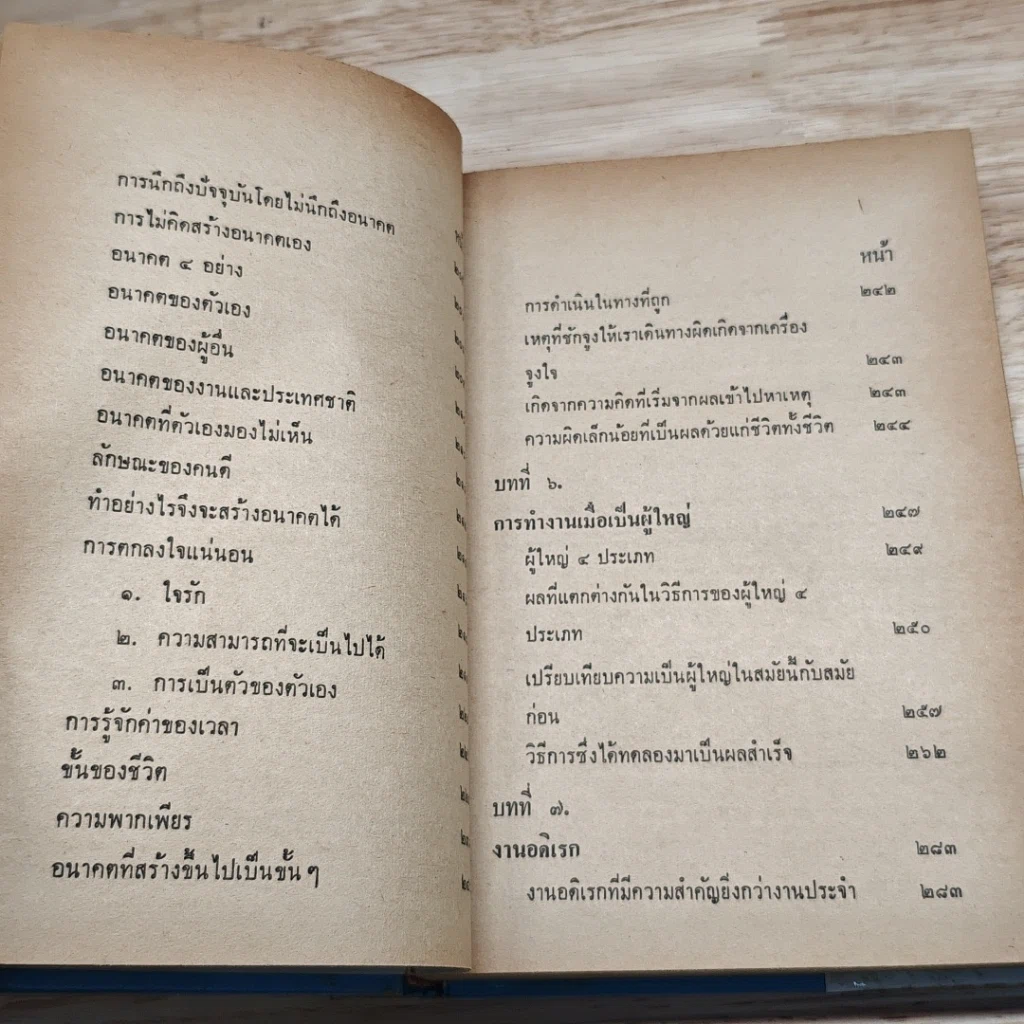 การนึกถึงปัจจุบันโดยไม่นึกถึงอนาคต
การไม่คิดสร้างอนาคตเอง
อนาคต ๔ อย่าง
อนาคตของตัวเอง
อนาคตของผู้อื่น
อนาคตของงานและประเทศชาติ
อนาคตที่ตัวเองมองไม่เห็น
ลักษณะของคนดี
ทำอย่างไรจึงจะสร้างอนาคตได้
การตกลงใจแน่นอน
๑. ใจรัก
๒. ความสามารถที่จะเป็นไปได้
๓. การเป็นตัวของตัวเอง
การรู้จักค่าของเวลา
ขั้นของชีวิต
ความพากเพียร
อนาคตที่สร้างขึ้นไปเป็นขั้น ๆ
หน้า
การดำเนินในทางที่ถูก ๒๔๒
เหตุที่ชักจูงให้เราเดินทางผิดเกิดจากเครื่อง
จูงใจ ๒๔๓
เกิดจากความคิดที่เริ่มจากผลเข้าไปหาเหตุ ๒๔๓
ความผิดเล็กน้อยที่เป็นผลด้วยแก่ชีวิตทั้งชีวิต ๒๔๔
บทที่ ๖.
การทำงานเมื่อเป็นผู้ใหญ่ ๒๔๗
ผู้ใหญ่ ๔ ประเภท ๒๔๙
ผลที่แตกต่างกันในวิธีการของผู้ใหญ่ ๔
ประเภท ๒๕๐
เปรียบเทียบความเป็นผู้ใหญ่ในสมัยนี้กับสมัย
ก่อน ๒๕๗
วิธีการซึ่งได้ทดลองมาเป็นผลสำเร็จ ๒๖๒
บทที่ ๗.
งานอดิเรก ๒๘๓
งานอดิเรกที่มีความสำคัญยิ่งกว่างานประจำ ๒๘๓